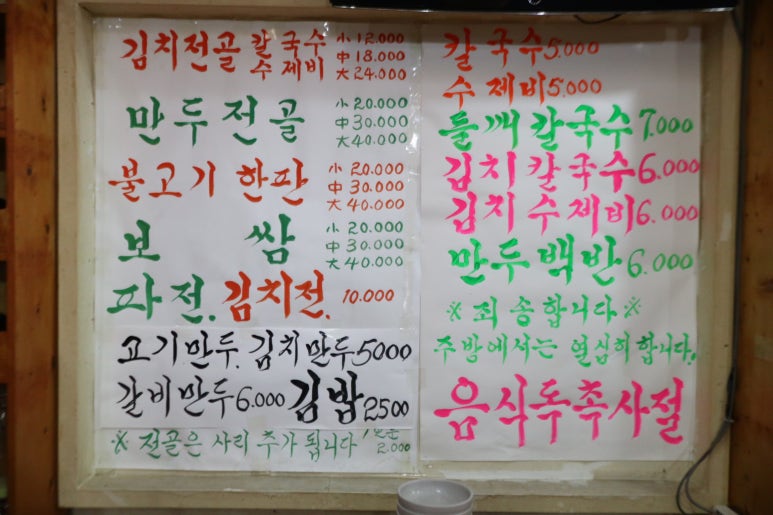 김치전골 칼국수 小 12.000
수제비 中 18.000
大 24.000
만두전골 小 20.000
中 30.000
大 40.000
불고기 한판 小 20.000
中 30.000
大 40.000
보 쌈 小 20.000
中 30.000
大 40.000
파전. 김치전. 10.000
고기만두. 김치만두 5000
갈비만두 6.000 김밥 2500
※ 전골은 사리 추가 됩니다
2.000
칼국수 5.000
수제비 5.000
들깨칼국수 7.000
김치칼국수 6.000
김치수제비 6.000
만두백반 6.000
※ 죄송합니다 ※
주방에서는 열심히 합니다.
음식독촉사절